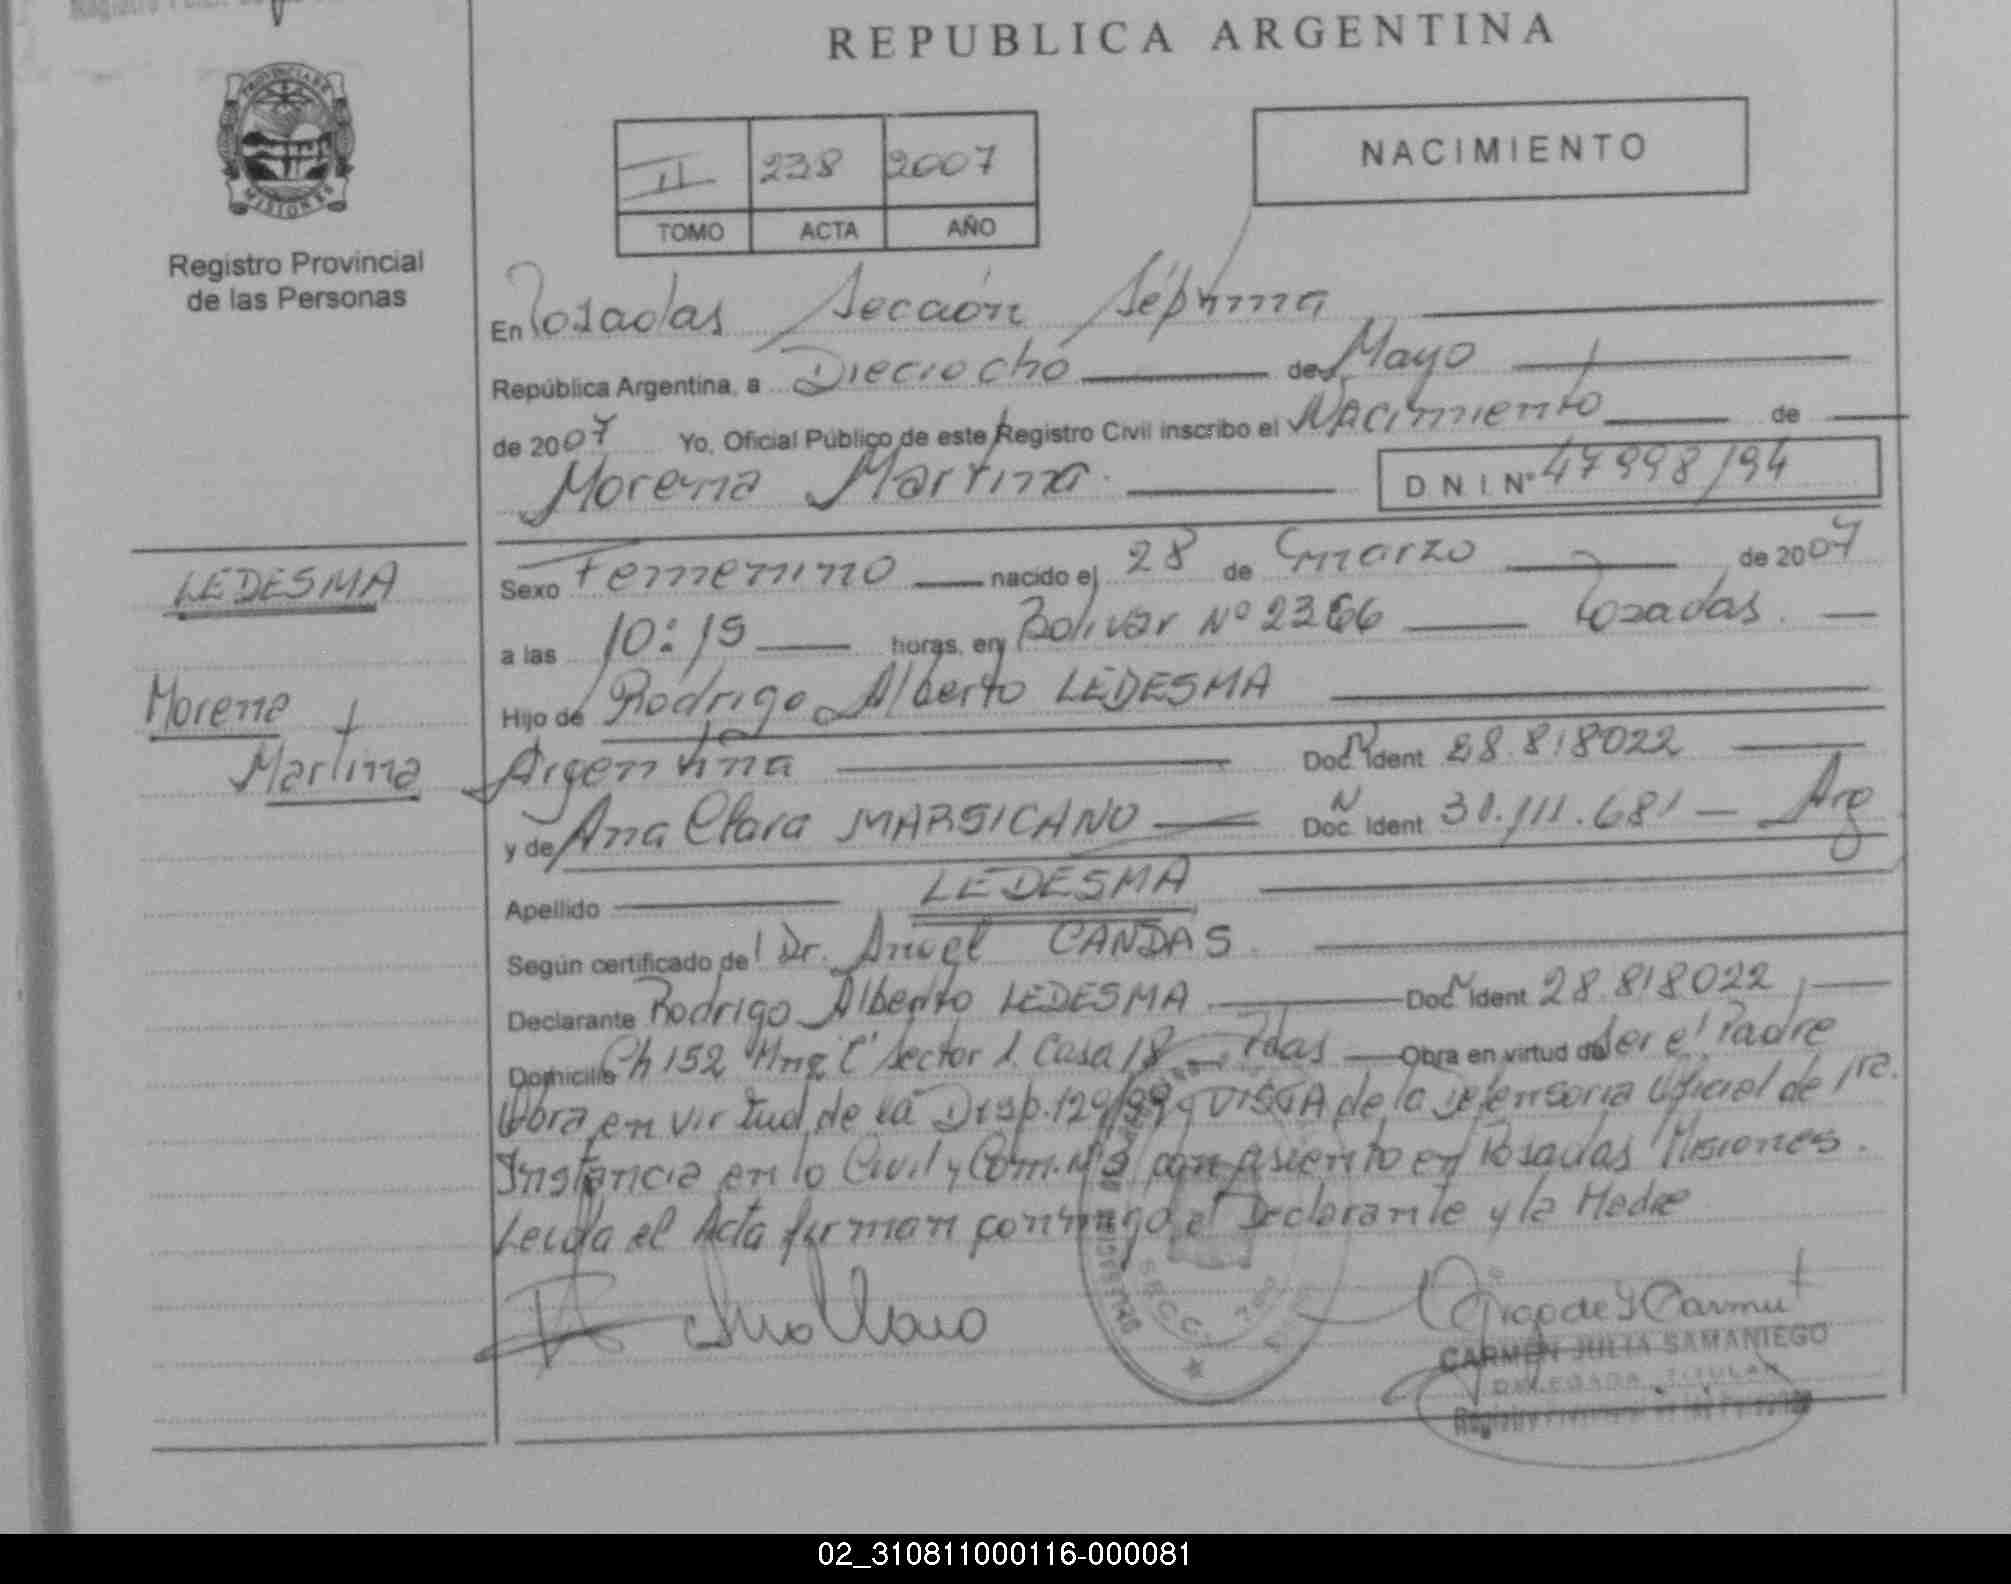 REPUBLICA ARGENTINA
PROVINCIA DE
MISIONES
Registro Provincial
de las Personas
II 238 2007
TOMO ACTA AÑO
NACIMIENTO
En Posadas Sección Séptima
República Argentina, a Dieciocho de Mayo
de 2007 Yo, Oficial Público de este Registro Civil inscribo el Nacimiento de
Morena Martina.
D N I Nº 47998194
LEDESMA
Morena
Martina
Sexo Femenino nacido el 28 de marzo de 2007
a las 10:15 horas, en Bolivar Nº 2366 Posadas.
Hijo de Rodrigo Alberto LEDESMA
Argentina Doc. Ident 28.818022
y de Ana Clara MARSICANO Doc. Ident 30.111.681 - Arg
Apellido LEDESMA
Según certificado de l Dr. Angel CANDAS.
Declarante Rodrigo Alberto LEDESMA Doc. Ident 28.818022
Domicilio Ch 152 Mnz "C" Sector 1. Casa 18 - Pdas Obra en virtud de Ser el Padre
Obra en virtud de la Disp. 129/99 y VISTA de la Defensoria Oficial de 1ra.
Instancia en lo Civil y Com. Nº con asiento en Posadas Misiones.
Leida el Acta firman conmigo el Declarante y la Madre
SECC. 7
CARMEN JULIA SAMANIEGO
DELEGADA TITULAR
Registro Provincial de las Personas
02_310811000116-000081